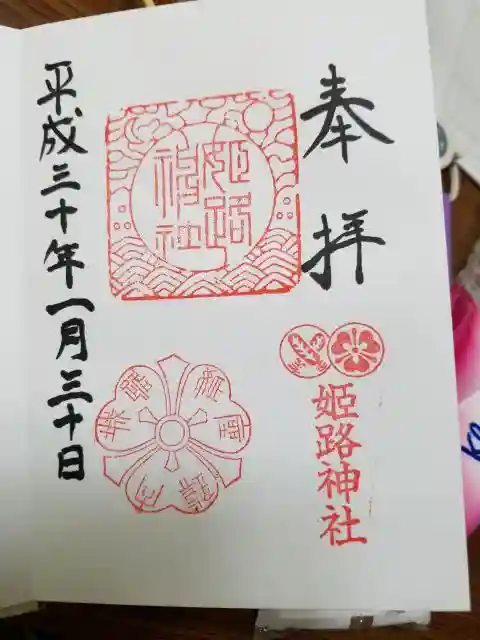 奉拝
姫路神社
姫路
神社
平成三十年一月三十日